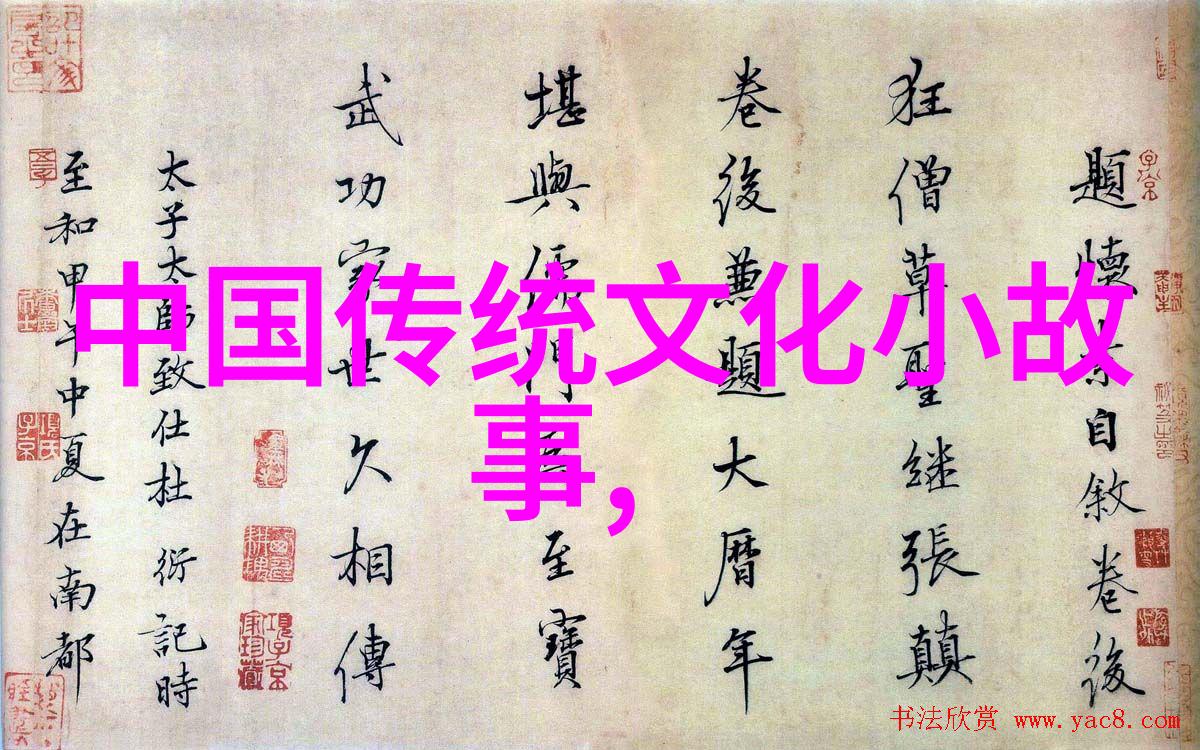 中国传统文化小故
事,
題懐素自敘卷後
狂僧草聖継張顛
卷後兼題大曆年
堪與儒門為至寶
武功家世久相傳
太子太師致仕杜衍記時
至和甲午中夏在南都
書法欣赏 www.yac8.com